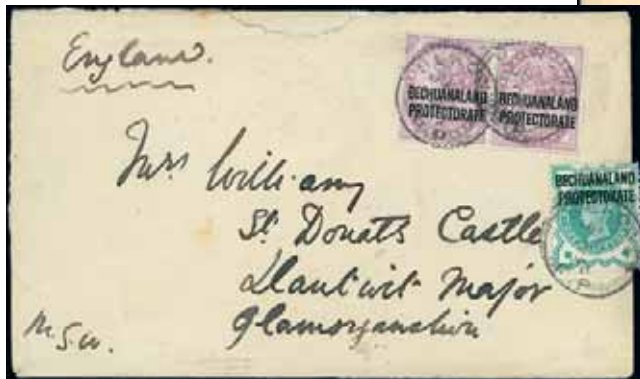 England.
BECHUANALAND PROTECTORATE
BECHUANALAND PROTECTORATE
BECHUANALAND PROTECTORATE
Mrs Williams
St. Donats Castle
Llantwit Major
Glamorganshire